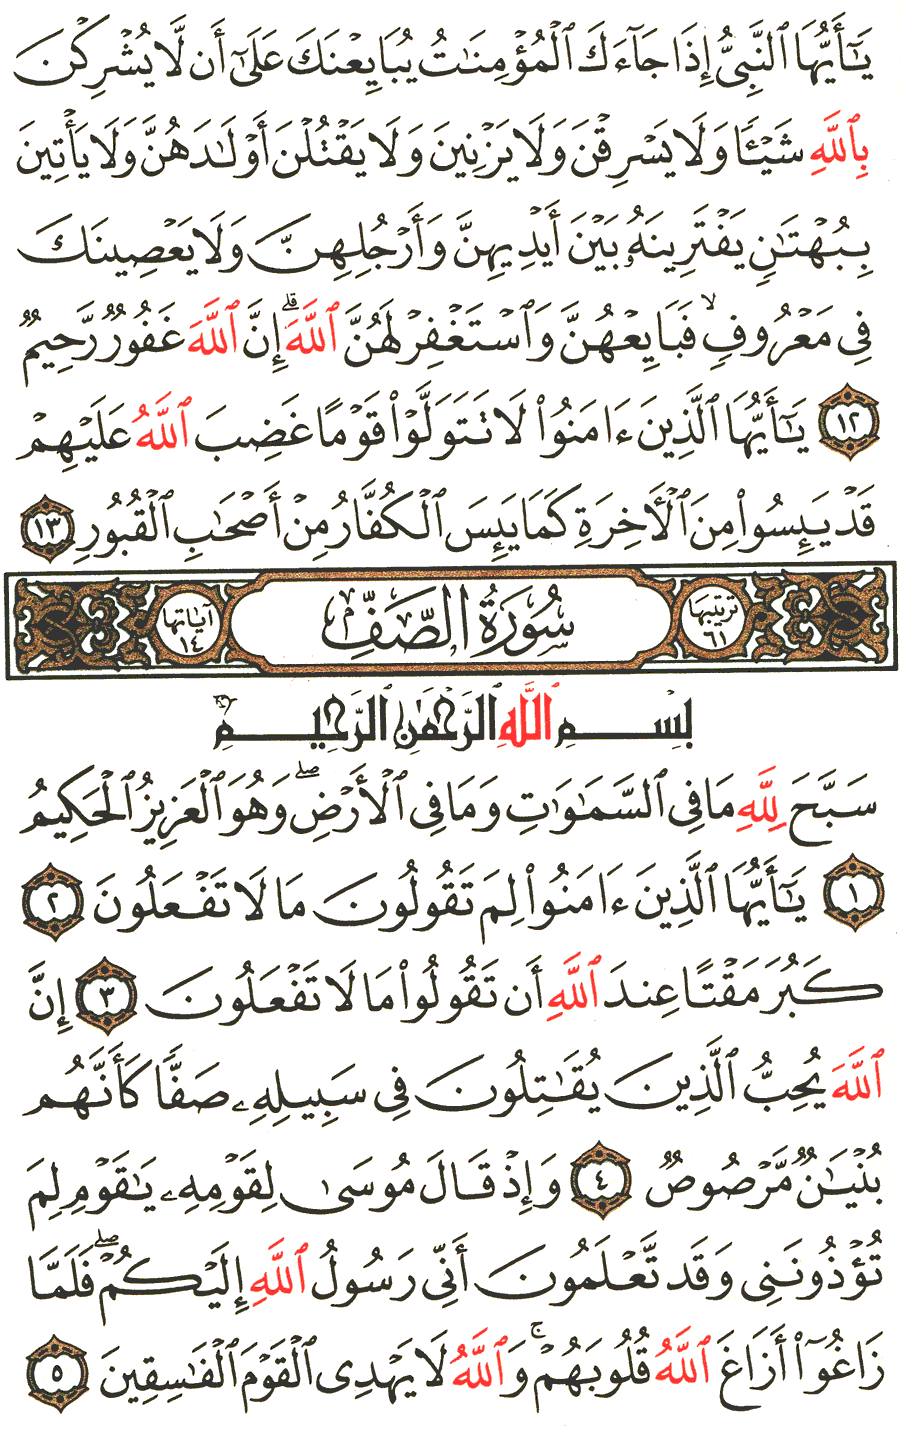 يَٰٓأَيُّهَا ٱلنَّبِىُّ إِذَا جَآءَكَ ٱلْمُؤْمِنَٰتُ يُبَايِعْنَكَ عَلَىٰٓ أَن لَّا يُشْرِكْنَ
بِٱللَّهِ شَيْـًٔا وَلَا يَسْرِقْنَ وَلَا يَزْنِينَ وَلَا يَقْتُلْنَ أَوْلَٰدَهُنَّ وَلَا يَأْتِينَ
بِبُهْتَٰنٍ يَفْتَرِينَهُۥ بَيْنَ أَيْدِيهِنَّ وَأَرْجُلِهِنَّ وَلَا يَعْصِينَكَ
فِى مَعْرُوفٍ ۙ فَبَايِعْهُنَّ وَٱسْتَغْفِرْ لَهُنَّ ٱللَّهَ ۗ إِنَّ ٱللَّهَ غَفُورٌ رَّحِيمٌ
١٢ يَٰٓأَيُّهَا ٱلَّذِينَ ءَامَنُوا۟ لَا تَتَوَلَّوْا۟ قَوْمًا غَضِبَ ٱللَّهُ عَلَيْهِمْ
قَدْ يَئِسُوا۟ مِنَ ٱلْءَاخِرَةِ كَمَا يَئِسَ ٱلْكُفَّارُ مِنْ أَصْحَٰبِ ٱلْقُبُورِ ١٣
ترتيبها ٦١ سُورَةُ الصَّفِّ آياتها ١٤
بِسْمِ ٱللَّهِ ٱلرَّحْمَٰنِ ٱلرَّحِيمِ
سَبَّحَ لِلَّهِ مَا فِى ٱلسَّمَٰوَٰتِ وَمَا فِى ٱلْأَرْضِ ۖ وَهُوَ ٱلْعَزِيزُ ٱلْحَكِيمُ
١ يَٰٓأَيُّهَا ٱلَّذِينَ ءَامَنُوا۟ لِمَ تَقُولُونَ مَا لَا تَفْعَلُونَ ٢
كَبُرَ مَقْتًا عِندَ ٱللَّهِ أَن تَقُولُوا۟ مَا لَا تَفْعَلُونَ ٣ إِنَّ
ٱللَّهَ يُحِبُّ ٱلَّذِينَ يُقَٰتِلُونَ فِى سَبِيلِهِۦ صَفًّا كَأَنَّهُم
بُنْيَٰنٌ مَّرْصُوصٌ ٤ وَإِذْ قَالَ مُوسَىٰ لِقَوْمِهِۦ يَٰقَوْمِ لِمَ
تُؤْذُونَنِى وَقَد تَّعْلَمُونَ أَنِّى رَسُولُ ٱللَّهِ إِلَيْكُمْ ۖ فَلَمَّا
زَاغُوٓا۟ أَزَاغَ ٱللَّهُ قُلُوبَهُمْ ۚ وَٱللَّهُ لَا يَهْدِى ٱلْقَوْمَ ٱلْفَٰسِقِينَ ٥